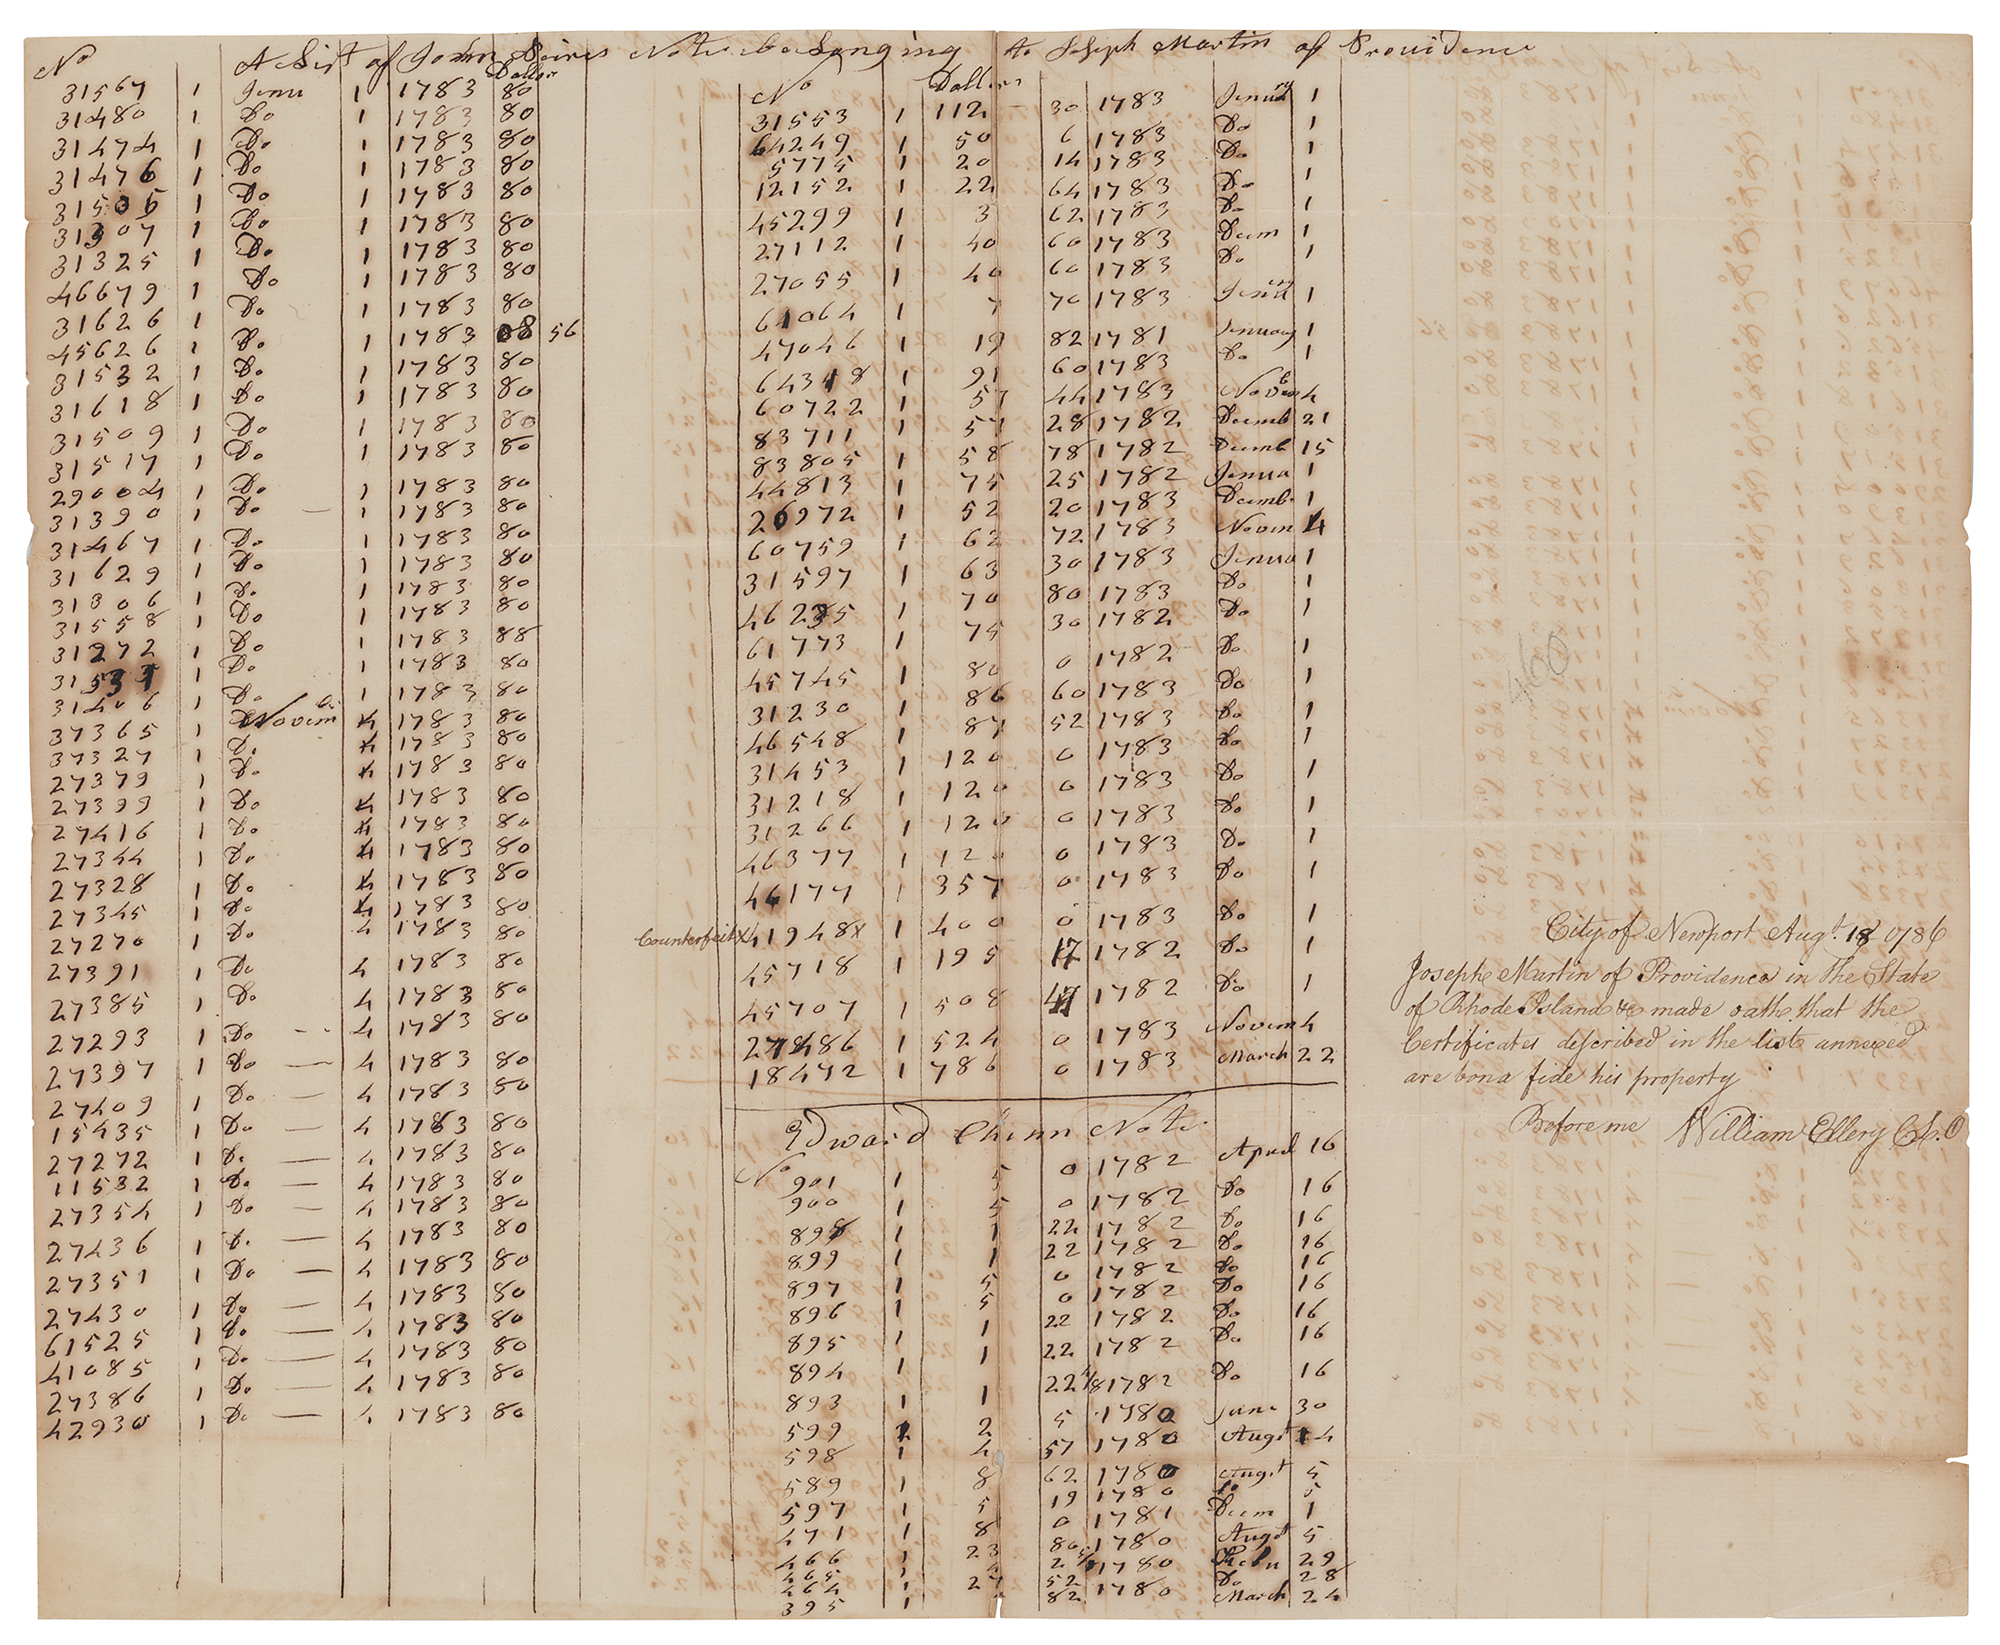 A List of John Peirces Notes belonging to Joseph Martin of Providence
No Dollars
31567 1 Jenu 1 1783 80
31480 1 Do 1 1783 80
31474 1 Do 1 1783 80
31476 1 Do 1 1783 80
31505 1 Do 1 1783 80
31307 1 Do 1 1783 80
31325 1 Do 1 1783 80
46679 1 Do 1 1783 80
31626 1 Do 1 1783 80
45626 1 Do 1 1783 08 56
31532 1 Do 1 1783 80
31618 1 Do 1 1783 80
31509 1 Do 1 1783 80
31517 1 Do 1 1783 80
29004 1 Do 1 1783 80
31390 1 Do — 1 1783 80
31467 1 Do 1 1783 80
31629 1 Do 1 1783 80
31306 1 Do 1 1783 80
31558 1 Do 1 1783 80
31272 1 Do 1 1783 88
1 Do 1 1783 80
31406 1 Do 1 1783 80
37365 1 Novem 4 1783 80
37327 1 Do 4 1783 80
27379 1 Do 4 1783 80
27399 1 Do 4 1783 80
27416 1 Do 4 1783 80
27344 1 Do 4 1783 80
27328 1 Do 4 1783 80
27345 1 Do 4 1783 80
27270 1 Do 4 1783 80
27391 1 Do 4 1783 80
27385 1 Do 4 1783 80
27293 1 Do — 4 1783 80
27397 1 Do — 4 1783 80
27409 1 Do — 4 1783 80
15435 1 Do — 4 1783 80
27272 1 Do — 4 1783 80
11532 1 Do — 4 1783 80
27354 1 Do — 4 1783 80
27436 1 Do — 4 1783 80
27351 1 Do — 4 1783 80
27430 1 Do — 4 1783 80
61525 1 Do — 4 1783 80
41085 1 Do — 4 1783 80
27386 1 Do — 4 1783 80
42930 1 Do — 4 1783 80
No Dollars
31553 1 112 30 1783 Jenury 1
64249 1 50 6 1783 Do 1
5775 1 20 14 1783 Do 1
12152 1 22 64 1783 Do 1
45299 1 3 62 1783 Do 1
27112 1 40 60 1783 Decem 1
27055 1 40 60 1783 Do 1
61064 1 7 70 1783 Jenury 1
47046 1 19 82 1781 Jenuary 1
64318 1 91 60 1783 Do 1
60722 1 57 44 1783 Novem 4
83711 1 57 28 1782 Decemb 21
83805 1 58 78 1782 Decemb 15
44813 1 75 25 1782 Jenua 1
26972 1 52 20 1783 Decemb 1
60759 1 62 72 1783 Novem 4
31597 1 63 30 1783 Jenua 1
46235 1 70 80 1783 Do 1
61773 1 75 30 1782 Do 1
45745 1 80 0 1782 Do 1
31230 1 86 60 1783 Do 1
46548 1 87 52 1783 Do 1
31453 1 120 0 1783 Do 1
31218 1 120 0 1783 Do 1
31266 1 120 0 1783 Do 1
46377 1 120 0 1783 Do 1
46177 1 357 0 1783 Do 1
Counterfeit X 41948 x 1 400 0 1783 Do 1
45718 1 195 17 1782 Do 1
45707 1 508 47 1782 Do 1
278486 1 524 0 1783 Novem 4
18472 1 786 0 1783 March 22
Edward Chinn Note
No 901 1 5 0 1782 April 16
900 1 5 0 1782 Do 16
898 1 1 22 1782 Do 16
899 1 1 22 1782 Do 16
897 1 5 0 1782 Do 16
896 1 5 0 1782 Do 16
895 1 1 22 1782 Do 16
894 1 1 22 1782 Do 16
893 1 1 22 4/8 1782 Do 16
599 1 2 5 1780 June 30
598 1 4 57 1780 Augst 14
589 1 8 62 1780 Augst 5
597 1 5 19 1780 Do 5
471 1 8 0 1781 Decem 1
466 1 23 80 1780 Augst 5
465 1 2 1780 Febu 29
464 1 27 52 Do 28
395 1 82 1780 March 24
460
City of Newport Augt. 18 1786
Joseph Martin of Providence in the State
of Rhode Island &c made oath that the
Certificates described in the list annexed
are bona fide his property
Before me William Ellery C.L.O